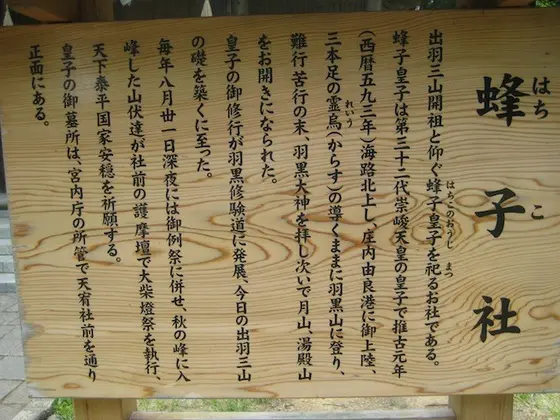 蜂子社
はちこ
出羽三山開祖と仰ぐ蜂子皇子を祀るお社である。
はちこのおうじ
まつ
蜂子皇子は第三十二代崇峻天皇の皇子で推古元年
(西暦五九三年)海路北上し、庄内由良港に御上陸、
三本足の霊烏(からす)の導くままに羽黒山に登り、
れいう
難行苦行の末、羽黒大神を拝し次いで月山、湯殿山
をお開きになられた。
皇子の御修行が羽黒修験道に発展、今日の出羽三山
の礎を築くに至った。
毎年八月卅一日深夜には御例祭に併せ、秋の峰に入
峰した山伏達が社前の護摩壇で大柴燈祭を執行、
天下泰平国家安穏を祈願する。
皇子の御墓所は、宮内庁の所管で天宥社前を通り
正面にある。